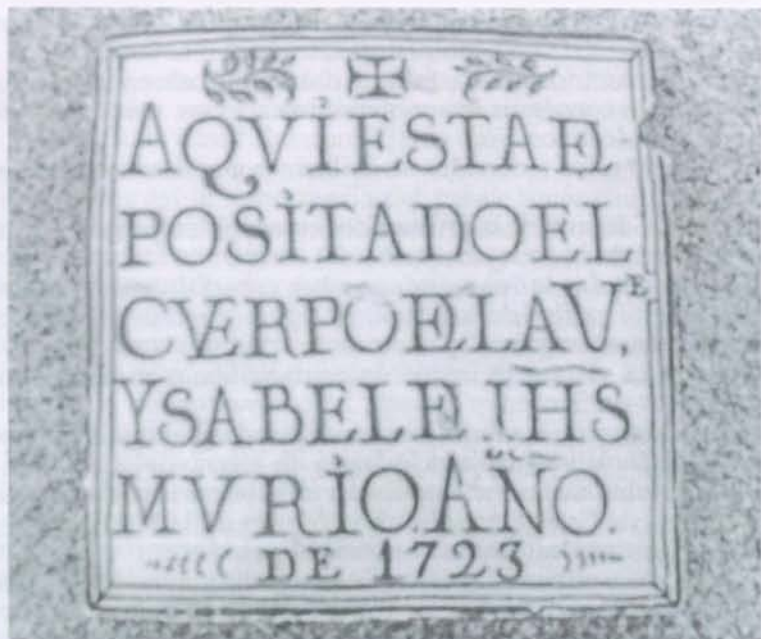 AQVIESTADE
POSITADOEL
CVERPODELAVᴱ.
YSABELDE IHS
MVRIO.AÑO.
DE 1723